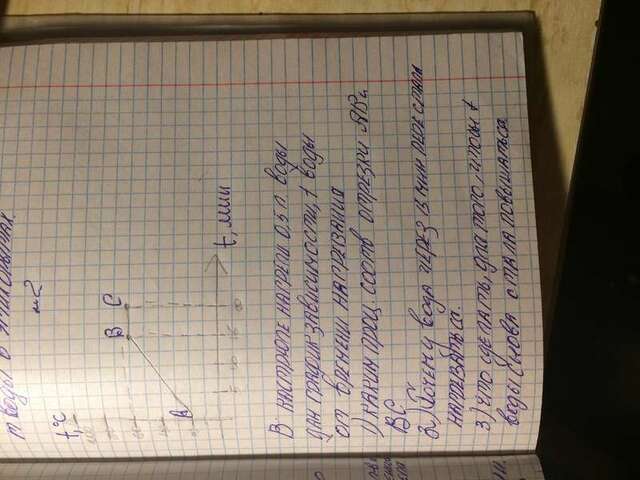 воды в
№2
t,°C
A
B C
5
t, мин
В кастрюле нагрели 0,5л воды
Дан график зависимости t воды
от времени нагревания
1) каким проц. соотв отрезки AB и
BC
2) Почему вода через мин перестала
нагреваться.
3) Что сделать, для того чтобы t
воды снова стала повышаться